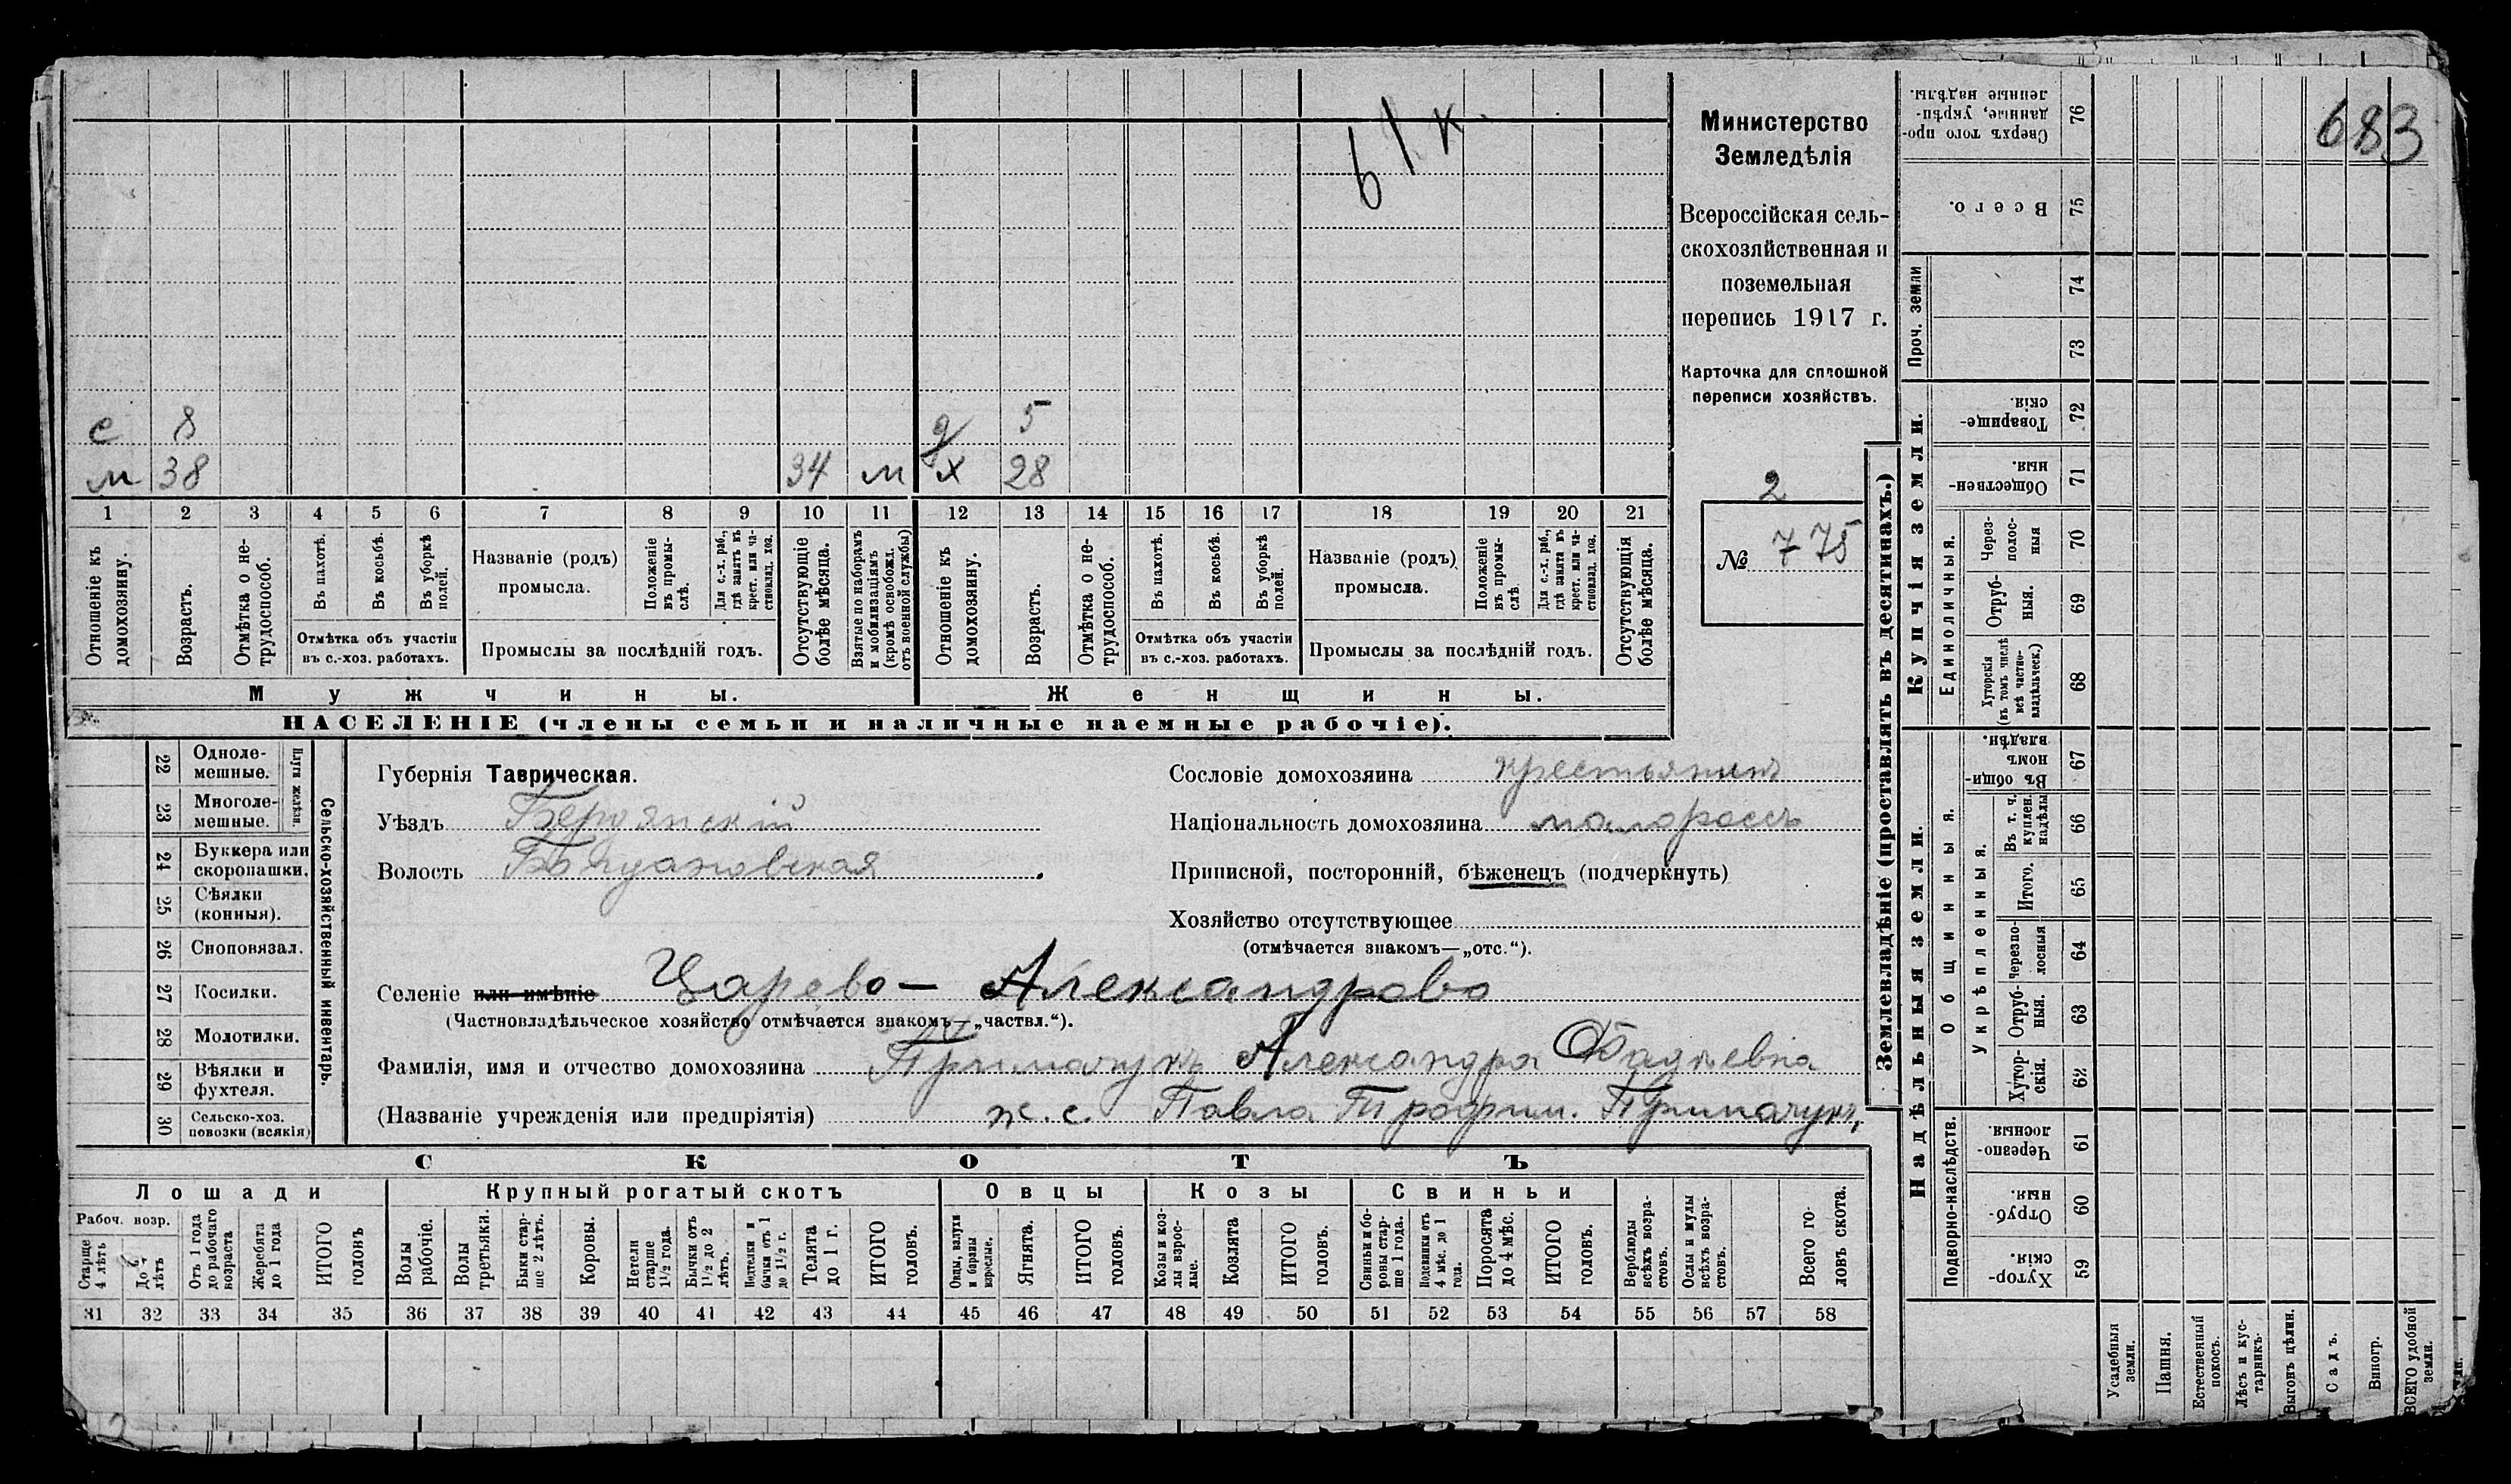 683
61 к.
Министерство
Земледѣлія
Всероссійская сель-
скохозяйственная и
поземельная
перепись 1917 г.
Карточка для сплошной
переписи хозяйствъ.
2
№ 775
с 8 д 5
м 38 34 м х 28
1 2 3 4 5 6 7 8 9 10 11 12 13 14 15 16 17 18 19 20 21
Отношеніе къ домохозяину.
Возрастъ.
Отмѣтка о не-трудоспособ.
Въ пахотѣ.
Въ косьбѣ.
Въ уборкѣ полей.
Отмѣтка объ участіи
въ с.-хоз. работахъ.
Названіе (родъ)
промысла.
Положеніе въ промы-слѣ.
Для с.-х. раб., гдѣ занятъ въ крест. или ча-стновлад. хоз.
Промыслы за послѣдній годъ.
Отсутствующіе болѣе мѣсяца.
Взятые по наборамъ и мобилизаціямъ (кромѣ освобожд. отъ военной службы)
Отношеніе къ домохозяину.
Возрастъ.
Отмѣтка о не-трудоспособ.
Въ пахотѣ.
Въ косьбѣ.
Въ уборкѣ полей.
Отмѣтка объ участіи
въ с.-хоз. работахъ.
Названіе (родъ)
промысла.
Положеніе въ промы-слѣ
Для с.-х. раб., гдѣ занятъ въ крест. или ча-стновлад. хоз.
Промыслы за послѣдній годъ.
Отсутствующія болѣе мѣсяца.
Мужчины.
Женщины.
НАСЕЛЕНІЕ (члены семьи и наличные наемные рабочіе).
22 Одноле-мешные.
23 Многоле-мешные.
Плуги желѣзн.
24 Буккера или скоропашки.
25 Сѣялки (конныя).
26 Сноповязал.
27 Косилки.
28 Молотилки.
29 Вѣялки и фухтеля.
30 Сельско-хоз. повозки (всякія)
Сельско-хозяйственный инвентарь.
Губернія Таврическая.
Уѣздъ Бердянскій
Волость
Сословіе домохозяина крестьянинъ
Національность домохозяина малороссъ
Приписной, посторонній, бѣженецъ (подчеркнуть)
Хозяйство отсутствующее
(отмѣчается знакомъ—„отс.“).
Селеніе или имѣніе Царево – Александрово
(Частновладѣльческое хозяйство отмѣчается знакомъ—„частвл.“).
Фамилія, имя и отчество домохозяина Примачукъ Александра Фадѣевна
(Названіе учрежденія или предпріятія) ж. с. Павла Трофим. Примачукъ,
СКОТЪ
Лошади
Крупный рогатый скотъ
Овцы
Козы
Свиньи
Рабоч. возр.
Старше 4 лѣтъ
До лѣтъ
Отъ 1 года до рабочаго возраста
Жеребята до 1 года
ИТОГО головъ
Волы рабочіе.
Волы третьяки.
Быки стар-ше 2 лѣтъ.
Коровы.
Нетели старше 1½ года.
Бычки отъ 1½ до 2 лѣтъ.
Подтелки и бычки отъ 1 до 1½ г.
Телята до 1 г.
ИТОГО головъ.
Овцы, валухи и бараны взрослые.
Ягнята.
ИТОГО головъ.
Козы и коз-лы взрос-лые.
Козлята
ИТОГО головъ.
Свиньи и бо-ровы стар-ше 1 года.
Подсвинки отъ 4 мѣс. до 1 года.
Поросята до 4 мѣс.
ИТОГО головъ.
Верблюды всѣхъ возра-стовъ.
Ослы и мулы всѣхъ возра-стовъ.
Всего го-ловъ скота.
31 32 33 34 35 36 37 38 39 40 41 42 43 44 45 46 47 48 49 50 51 52 53 54 55 56 57 58
Землевладѣніе (проставлять въ десятинахъ.)
Надѣльныя земли.
Купчія земли.
Проч. земли
Подворно-наслѣдств.
Общинныя.
Укрѣпленныя.
Единоличныя.
Сверхъ того про-данные, укрѣп-ленные надѣлы. 76
Всего. 75
74
73
Товарище-скія. 72
Обществен-ныя. 71
Через-полос-ныя 70
Отруб-ныя. 69
Хуторскія (въ томъ числѣ всѣ частно-владѣльческ.) 68
Въ общи-номъ владѣн. 67
Въ т. ч. куплен. надѣлы 66
Итого. 65
Черезпо-лосныя 64
Отруб-ныя. 63
Хутор-скія. 62
Черезпо-лосныя 61
Отруб-ныя. 60
Хутор-скія 59
Усадебныя земли.
Пашня.
Естественный покосъ.
Лѣсъ и кус-тарникъ.
Выгонъ цѣлин.
Садъ.
Виногр.
ВСЕГО удобной земли.